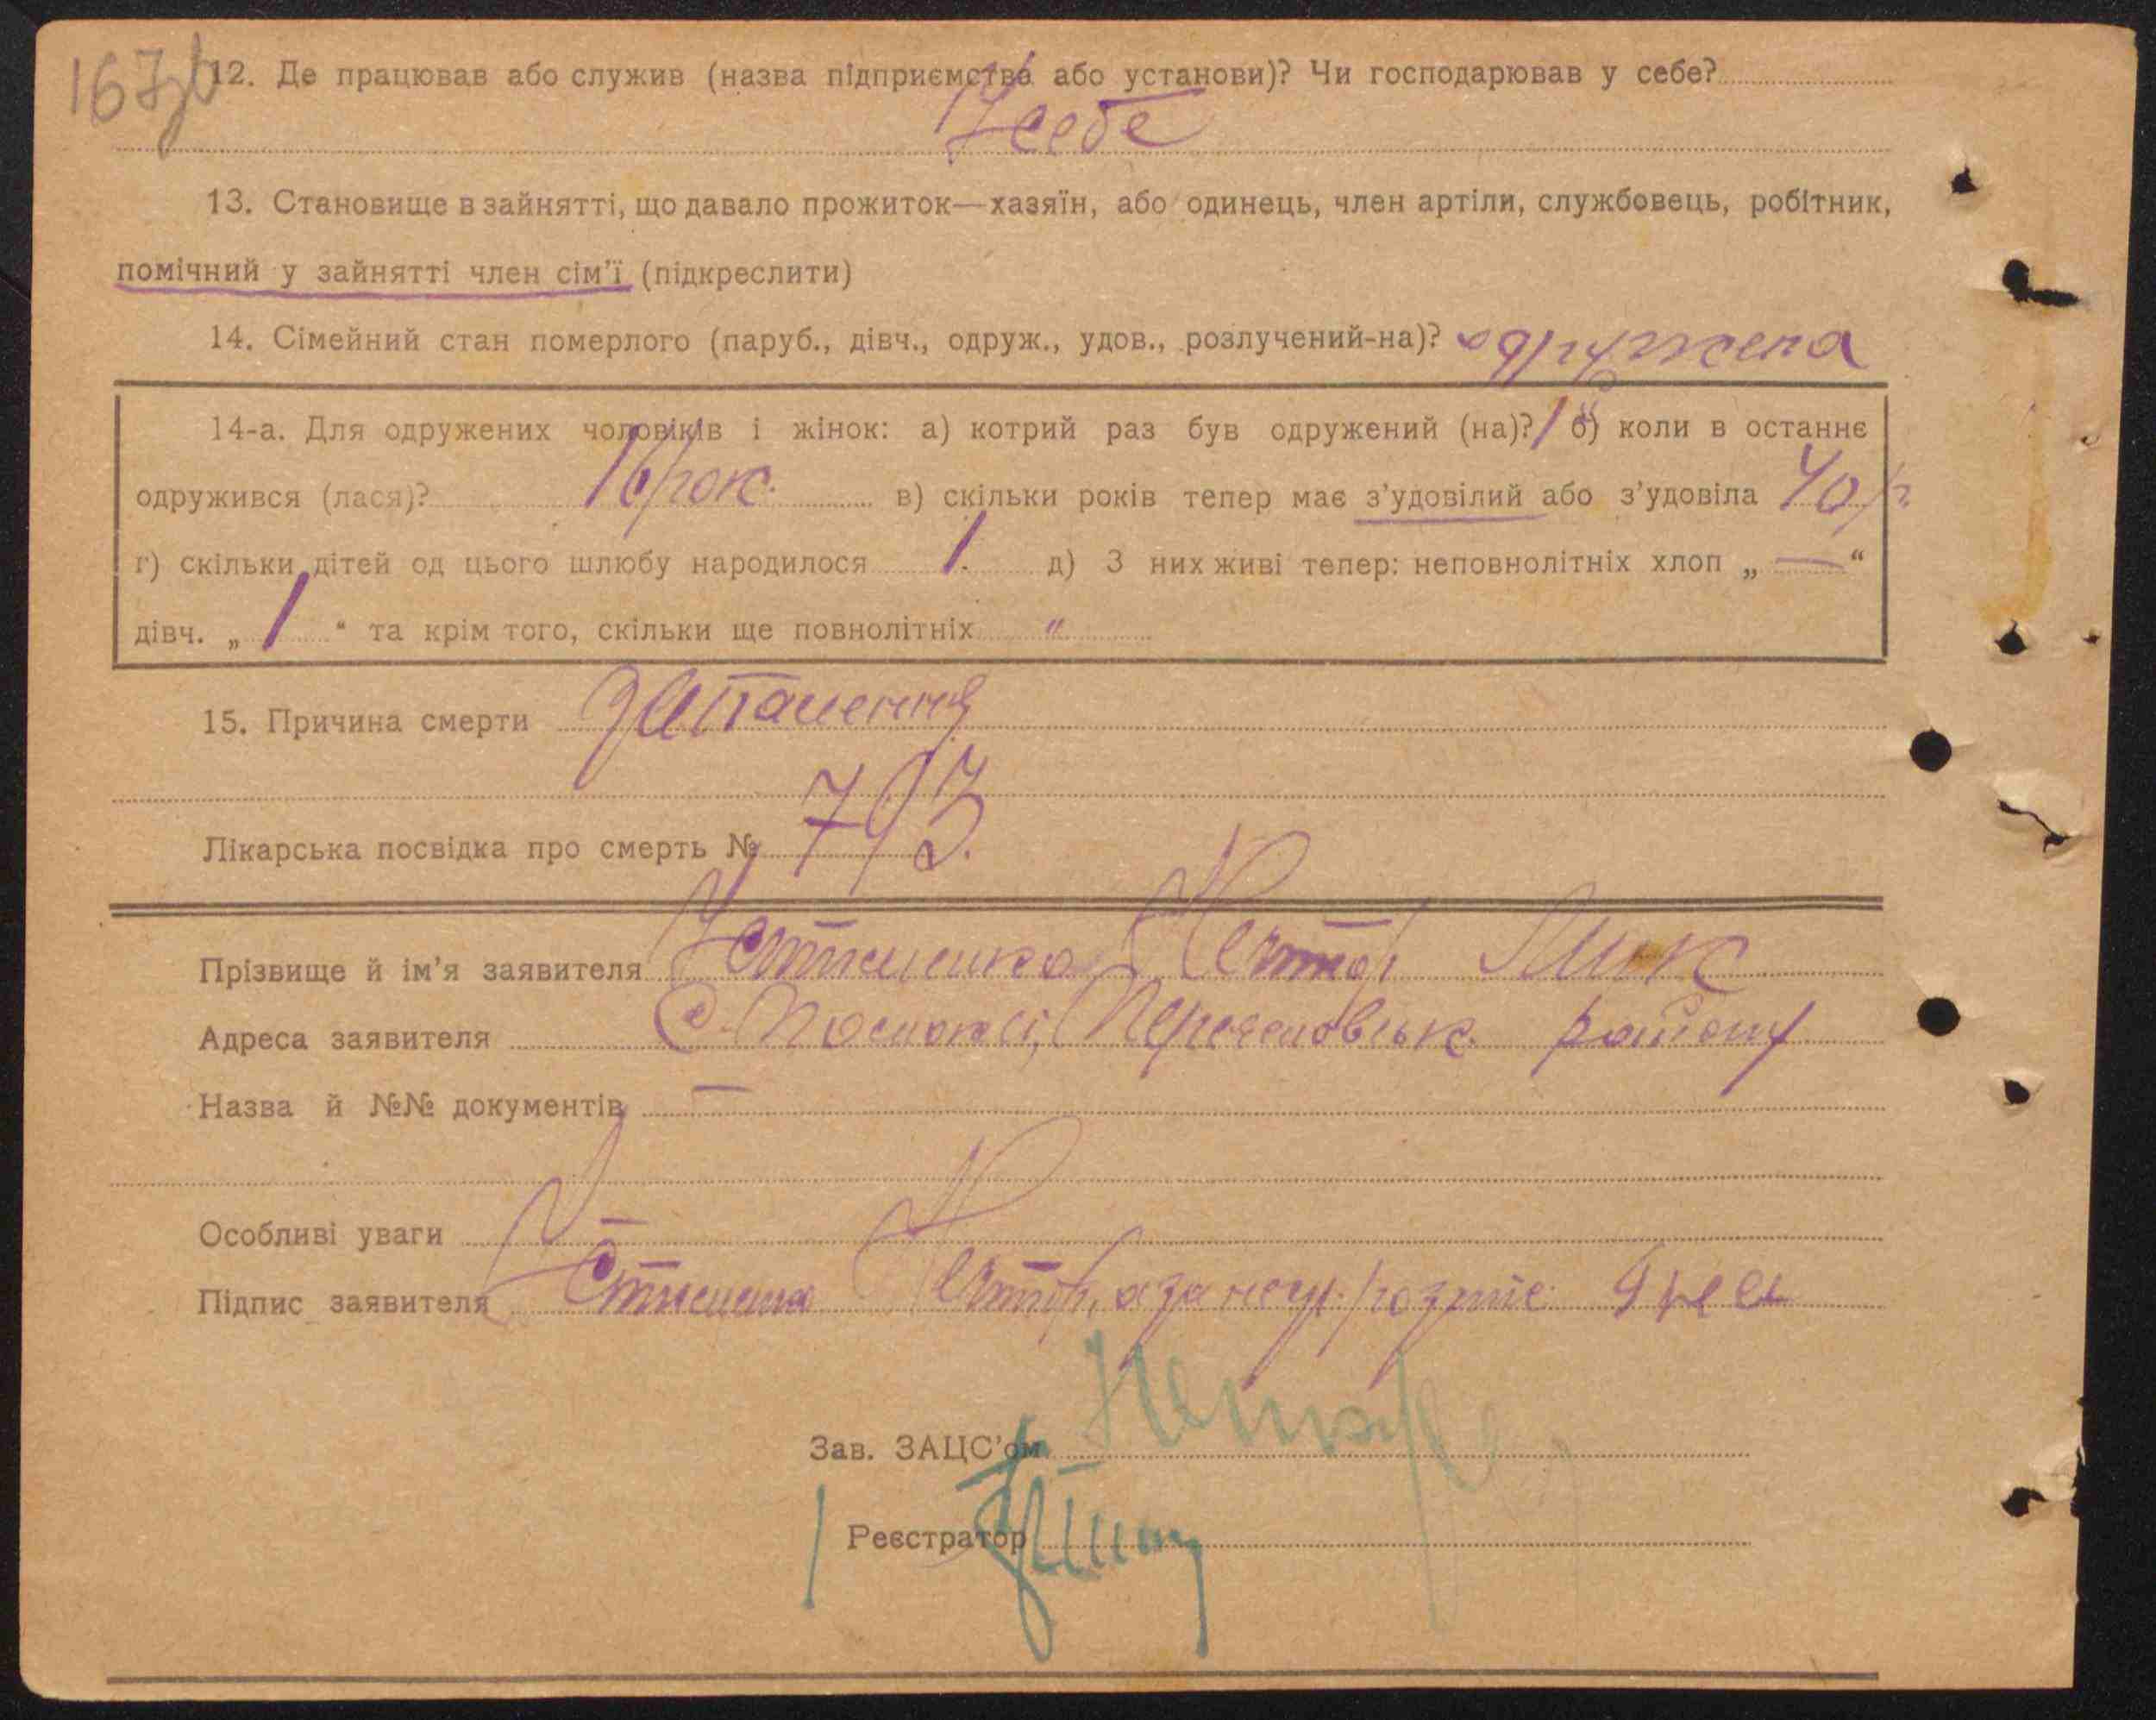 167зв
12. Де працював або служив (назва підприємства або установи)? Чи господарював у себе?
У себе
13. Становище в зайнятті, що давало прожиток—хазяїн, або одинець, член артіли, службовець, робітник,
помічний у зайнятті член сім'ї (підкреслити)
14. Сімейний стан померлого (паруб., дівч., одруж., удов., розлучений-на)? одружена
14-а. Для одружених чоловіків і жінок: а) котрий раз був одружений (на)? 1 б) коли в останнє
одружився (лася)? 16 рок. в) скільки років тепер має з'удовілий або з'удовіла 40 р.
г) скільки дітей од цього шлюбу народилося 1. д) З них живі тепер: неповнолітніх хлоп „ — “
дівч. „ 1 “ та крім того, скільки ще повнолітніх "
15. Причина смерти запалення
Лікарська посвідка про смерть № 793.
Прізвище й ім'я заявителя Устименко Нестор Мик
Адреса заявителя с. Помоклі, Переяславськ. району
Назва й №№ документів —
Особливі уваги
Підпис заявителя Устименко Нестор, а за негр. розпис
Зав. ЗАЦС'ом
Реєстратор